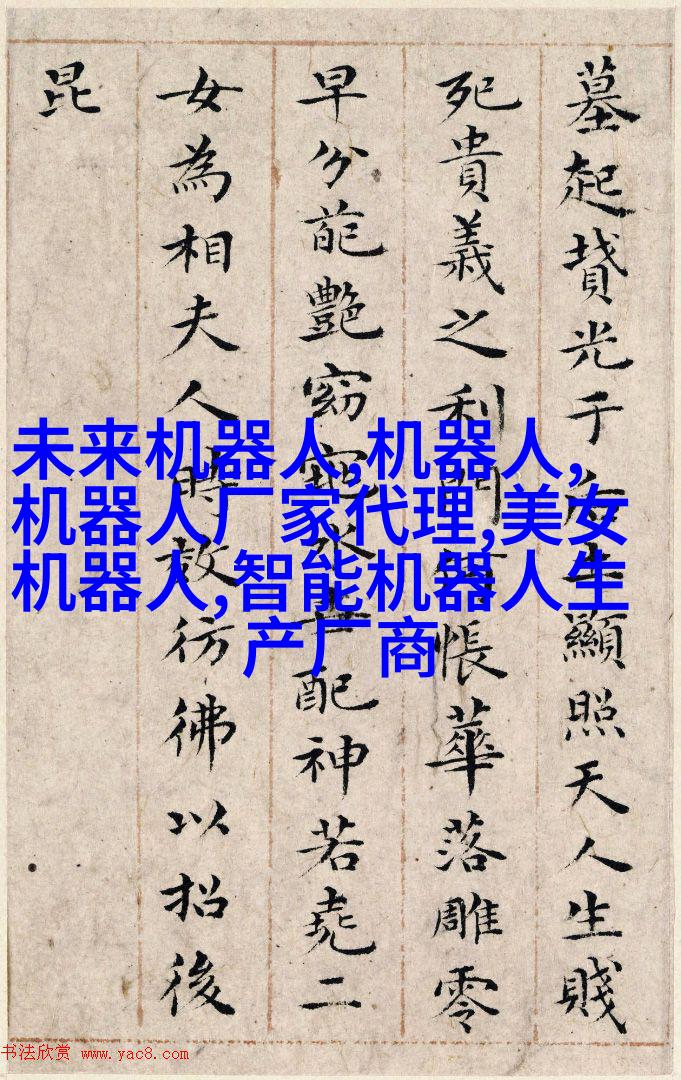 墓起墳光于后土顯照天人生賤
死貴義之利門悵華落雕零
早分葩艷窈窕永世配神若堯二
女為相夫人時效彷彿以招後
昆
未来机器人,机器人,
机器人厂家代理,美女
机器人,智能机器人生
产厂商
书法欣赏 www.yac8.com